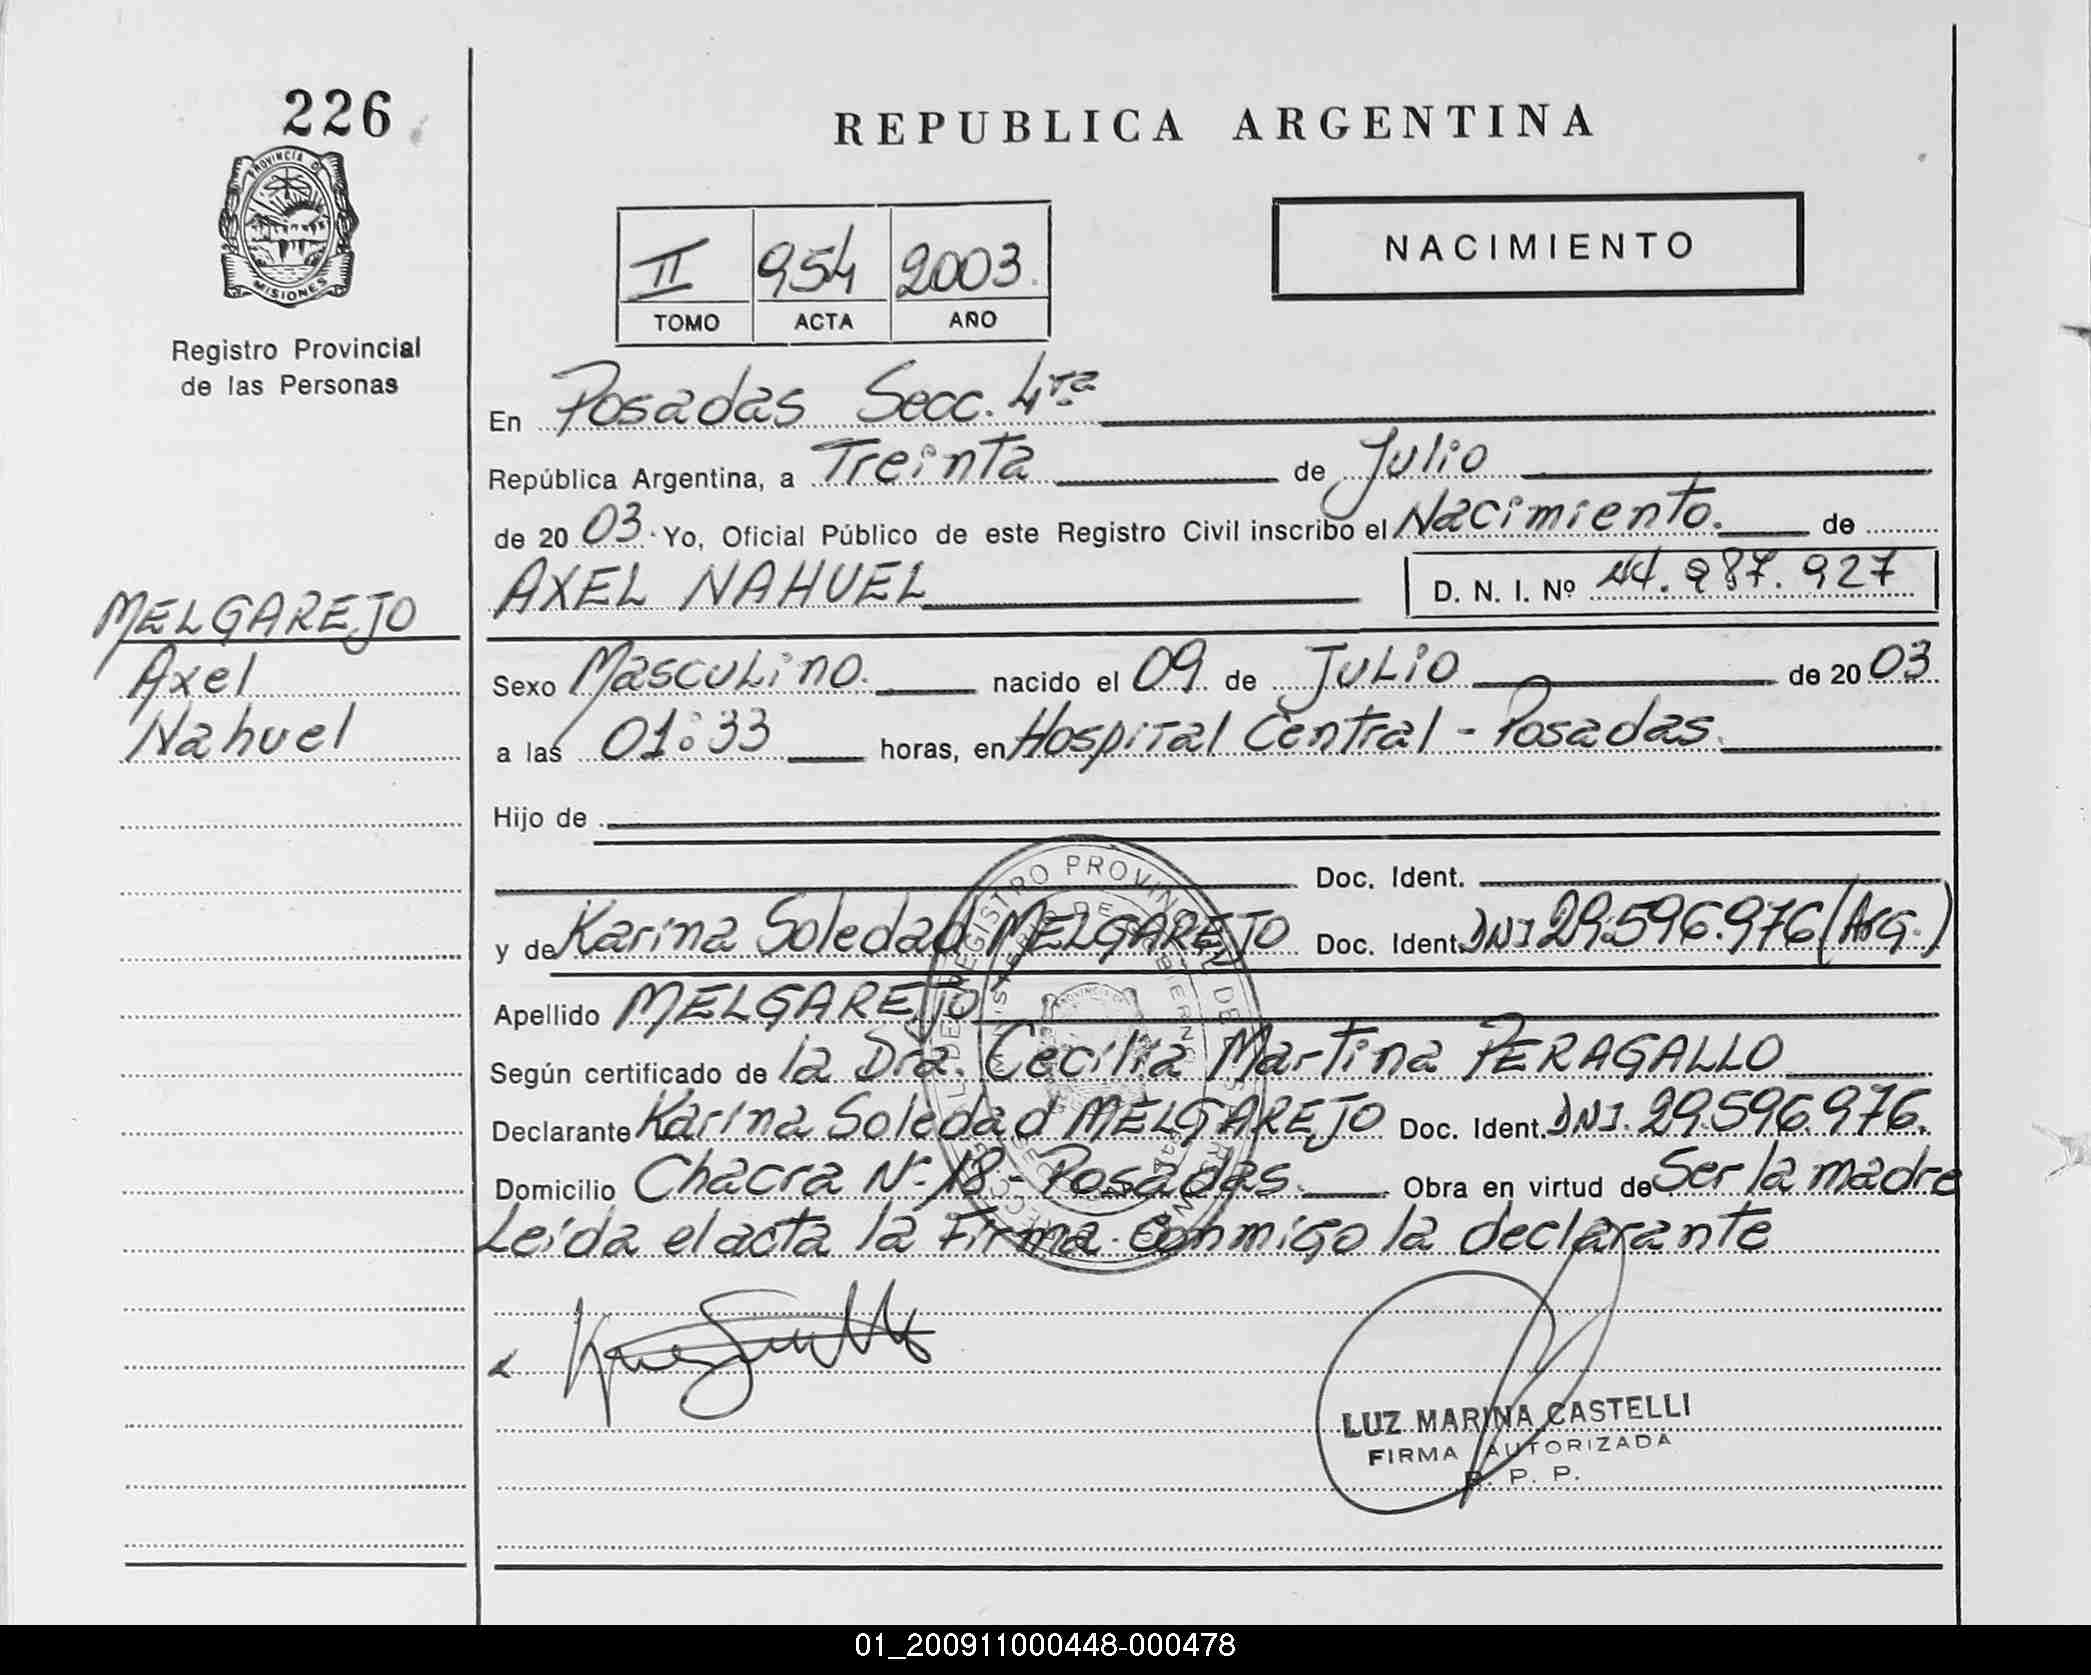 226
PROVINCIA DE
MISIONES
Registro Provincial
de las Personas
MELGAREJO
Axel
Nahuel
REPUBLICA ARGENTINA
II 954 2003.
TOMO ACTA AÑO
NACIMIENTO
En Posadas Secc. 4ta
República Argentina, a Treinta de Julio
de 20 03. Yo, Oficial Público de este Registro Civil inscribo el Nacimiento. de
AXEL NAHUEL D. N. I. Nº 44.987.927
Sexo Masculino. nacido el 09 de JULIO de 20 03
a las 01:33 horas, en Hospital Central - Posadas.
Hijo de
Doc. Ident.
y de Karina Soledad MELGAREJO Doc. Ident. DNI 29.596.976 (Arg.)
Apellido MELGAREJO
Según certificado de la Dra. Cecilia Martina PERAGALLO
Declarante Karina Soledad MELGAREJO Doc. Ident. DNI. 29.596.976.
Domicilio Chacra Nº 18 - Posadas. Obra en virtud de Ser la madre
Leida el acta la Firma conmigo la declarante
LUZ MARINA CASTELLI
FIRMA AUTORIZADA
R. P. P.
01_200911000448-000478